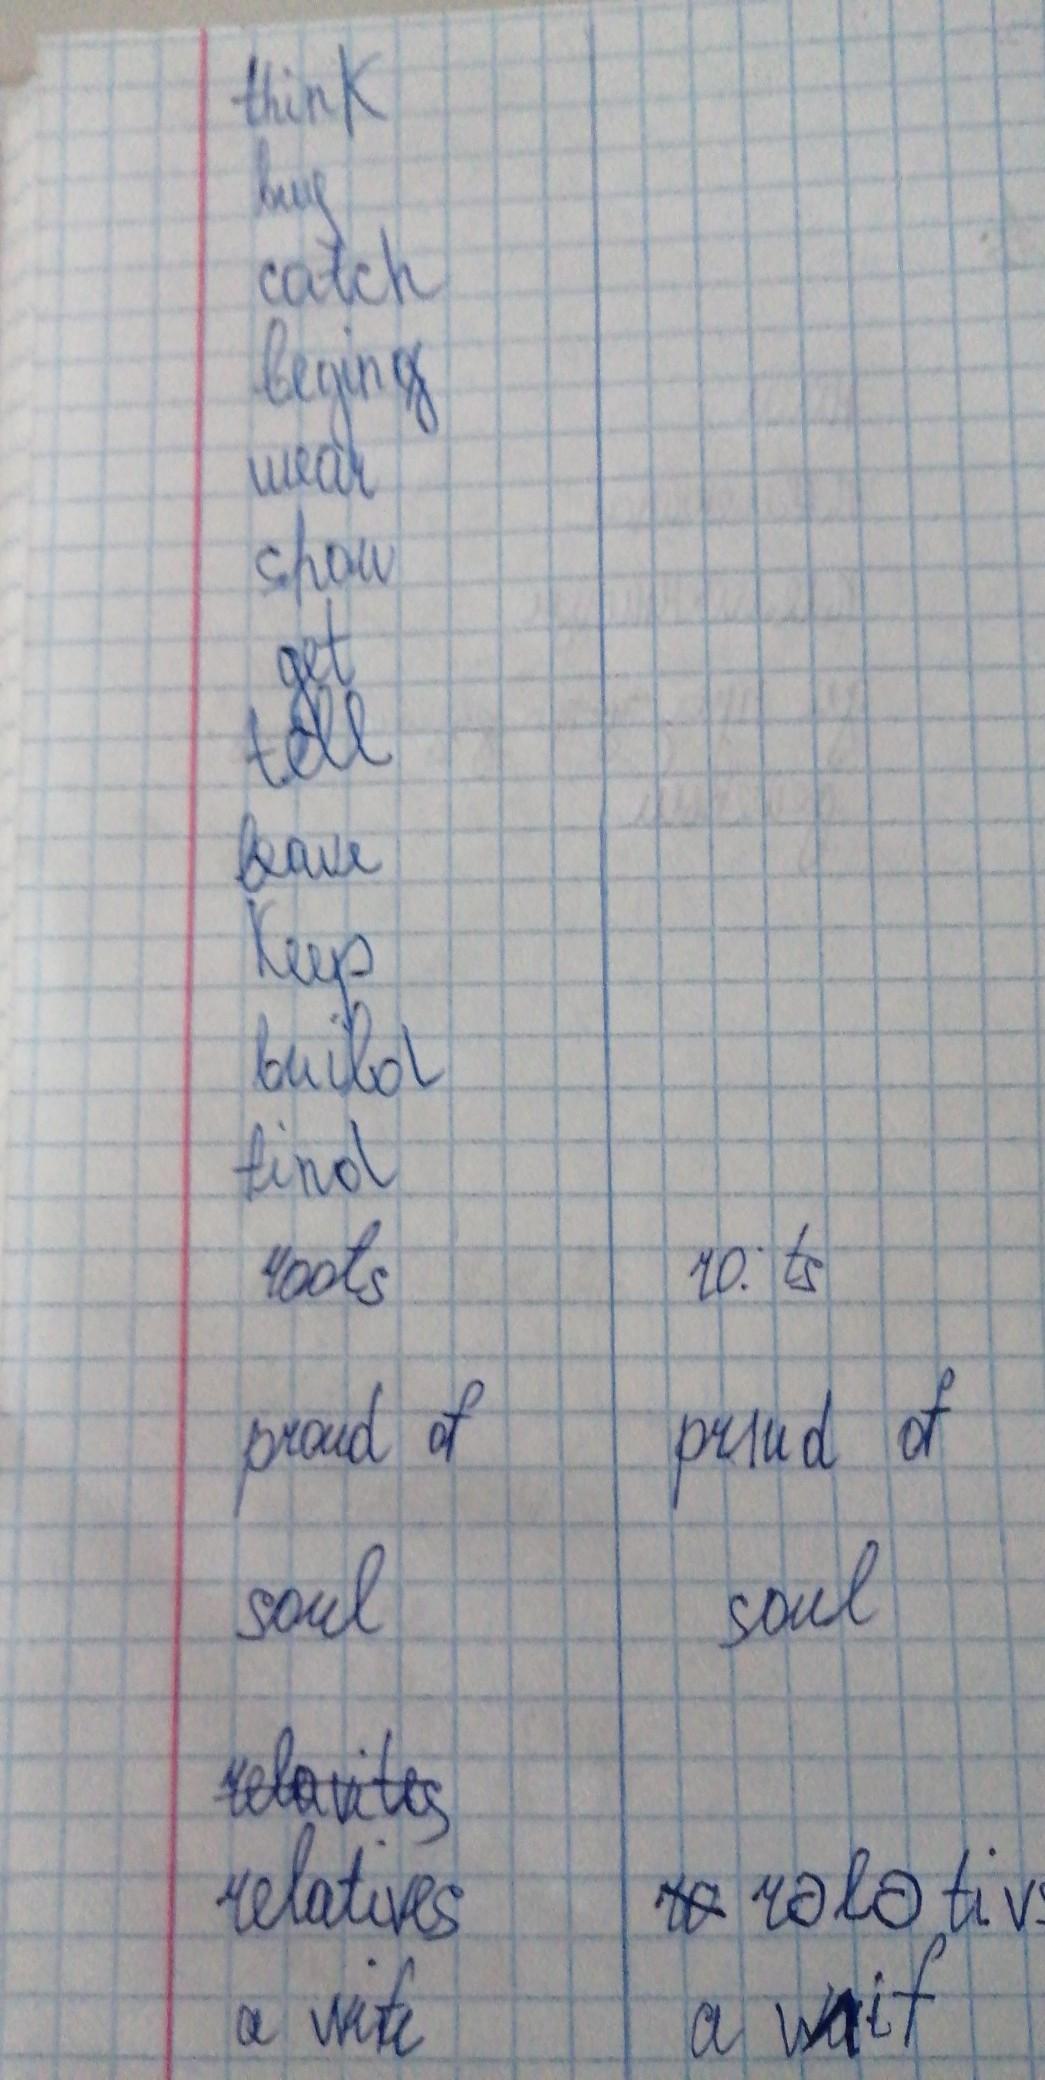 think
buy
catch
begin
wear
show
get
tell
leave
keep
build
find
roots ro: ts
proud of prıud of
soul soul
relavites
relatives rələ tivs
a wife a waif